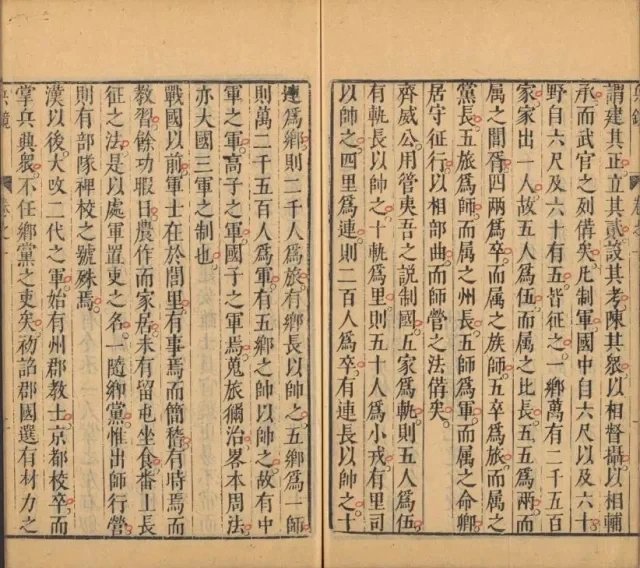 謂建其正立其貳設其考陳其衆以相督攝以相輔
承而武官之列備矣凡制軍國中自六尺以及六十
野自六尺及六十有五皆征之一鄉萬有二千五百
家家出一人故五人爲伍而属之比長五五爲兩而
属之閭胥四兩爲卒而属之族師五卒爲旅而属之
黨長五旅爲師而属之州長五師爲軍而属之命卿
居守征行以相部曲而師營之法備矣
齊威公用管夷吾之説制國五家爲軌則五人爲伍
有軌長以帥之十軌爲里則五十人爲小戎有里司
以帥之四里爲連則二百人爲卒有連長以帥之十
連爲鄉則二千人爲旅有鄉長以帥之五鄉爲一師
則萬二千五百人爲軍有五鄉之帥以帥之故有中
軍之軍高子之軍國子之軍焉蒐旅獮治畧本周法
亦大國三軍之制也
戰國以前軍士在於閭里有事焉而簡稽有時焉而
教習餘功暇日農作而家居未有留屯坐食番上長
征之法是以處軍置吏之名一隨鄉黨惟出師行營
則有部隊裨校之號殊焉
漢以後大改二代之軍始有州郡教士京都校卒而
掌兵典衆不任鄉黨之吏矣初詔郡國選有材力之
兵鏡
卷之一